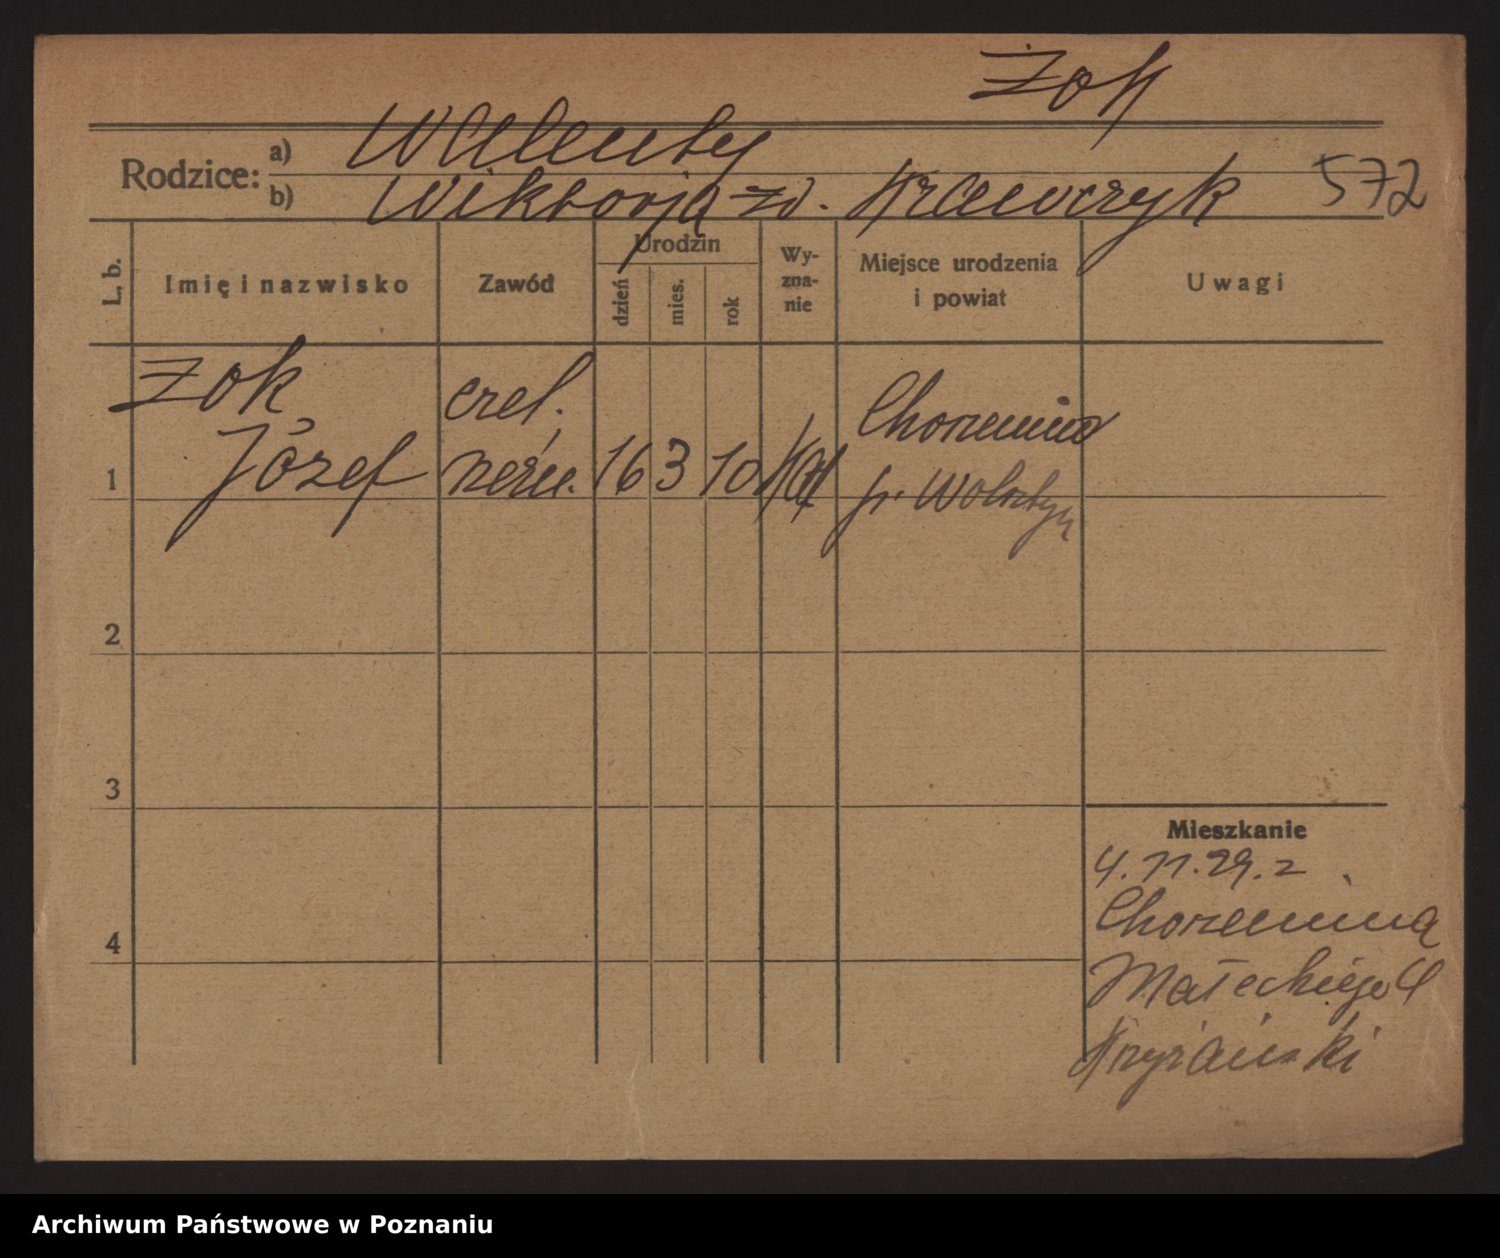 Żok
Rodzice:
a) Walenty
b) Wiktorja zd. Krawczyk
572
L. b.
Imię i nazwisko
Zawód
Urodzin
dzień
mies.
rok
Wy-
zna-
nie
Miejsce urodzenia
i powiat
Uwagi
1
Żok
Józef
czel.
rzeźn.
16
3
10
kat
Chorzemin
p. Wolsztyn
2
3
4
Mieszkanie
4.11.29. z
Chorzemina
Małeckiego 4
Krzyżański
Archiwum Państwowe w Poznaniu